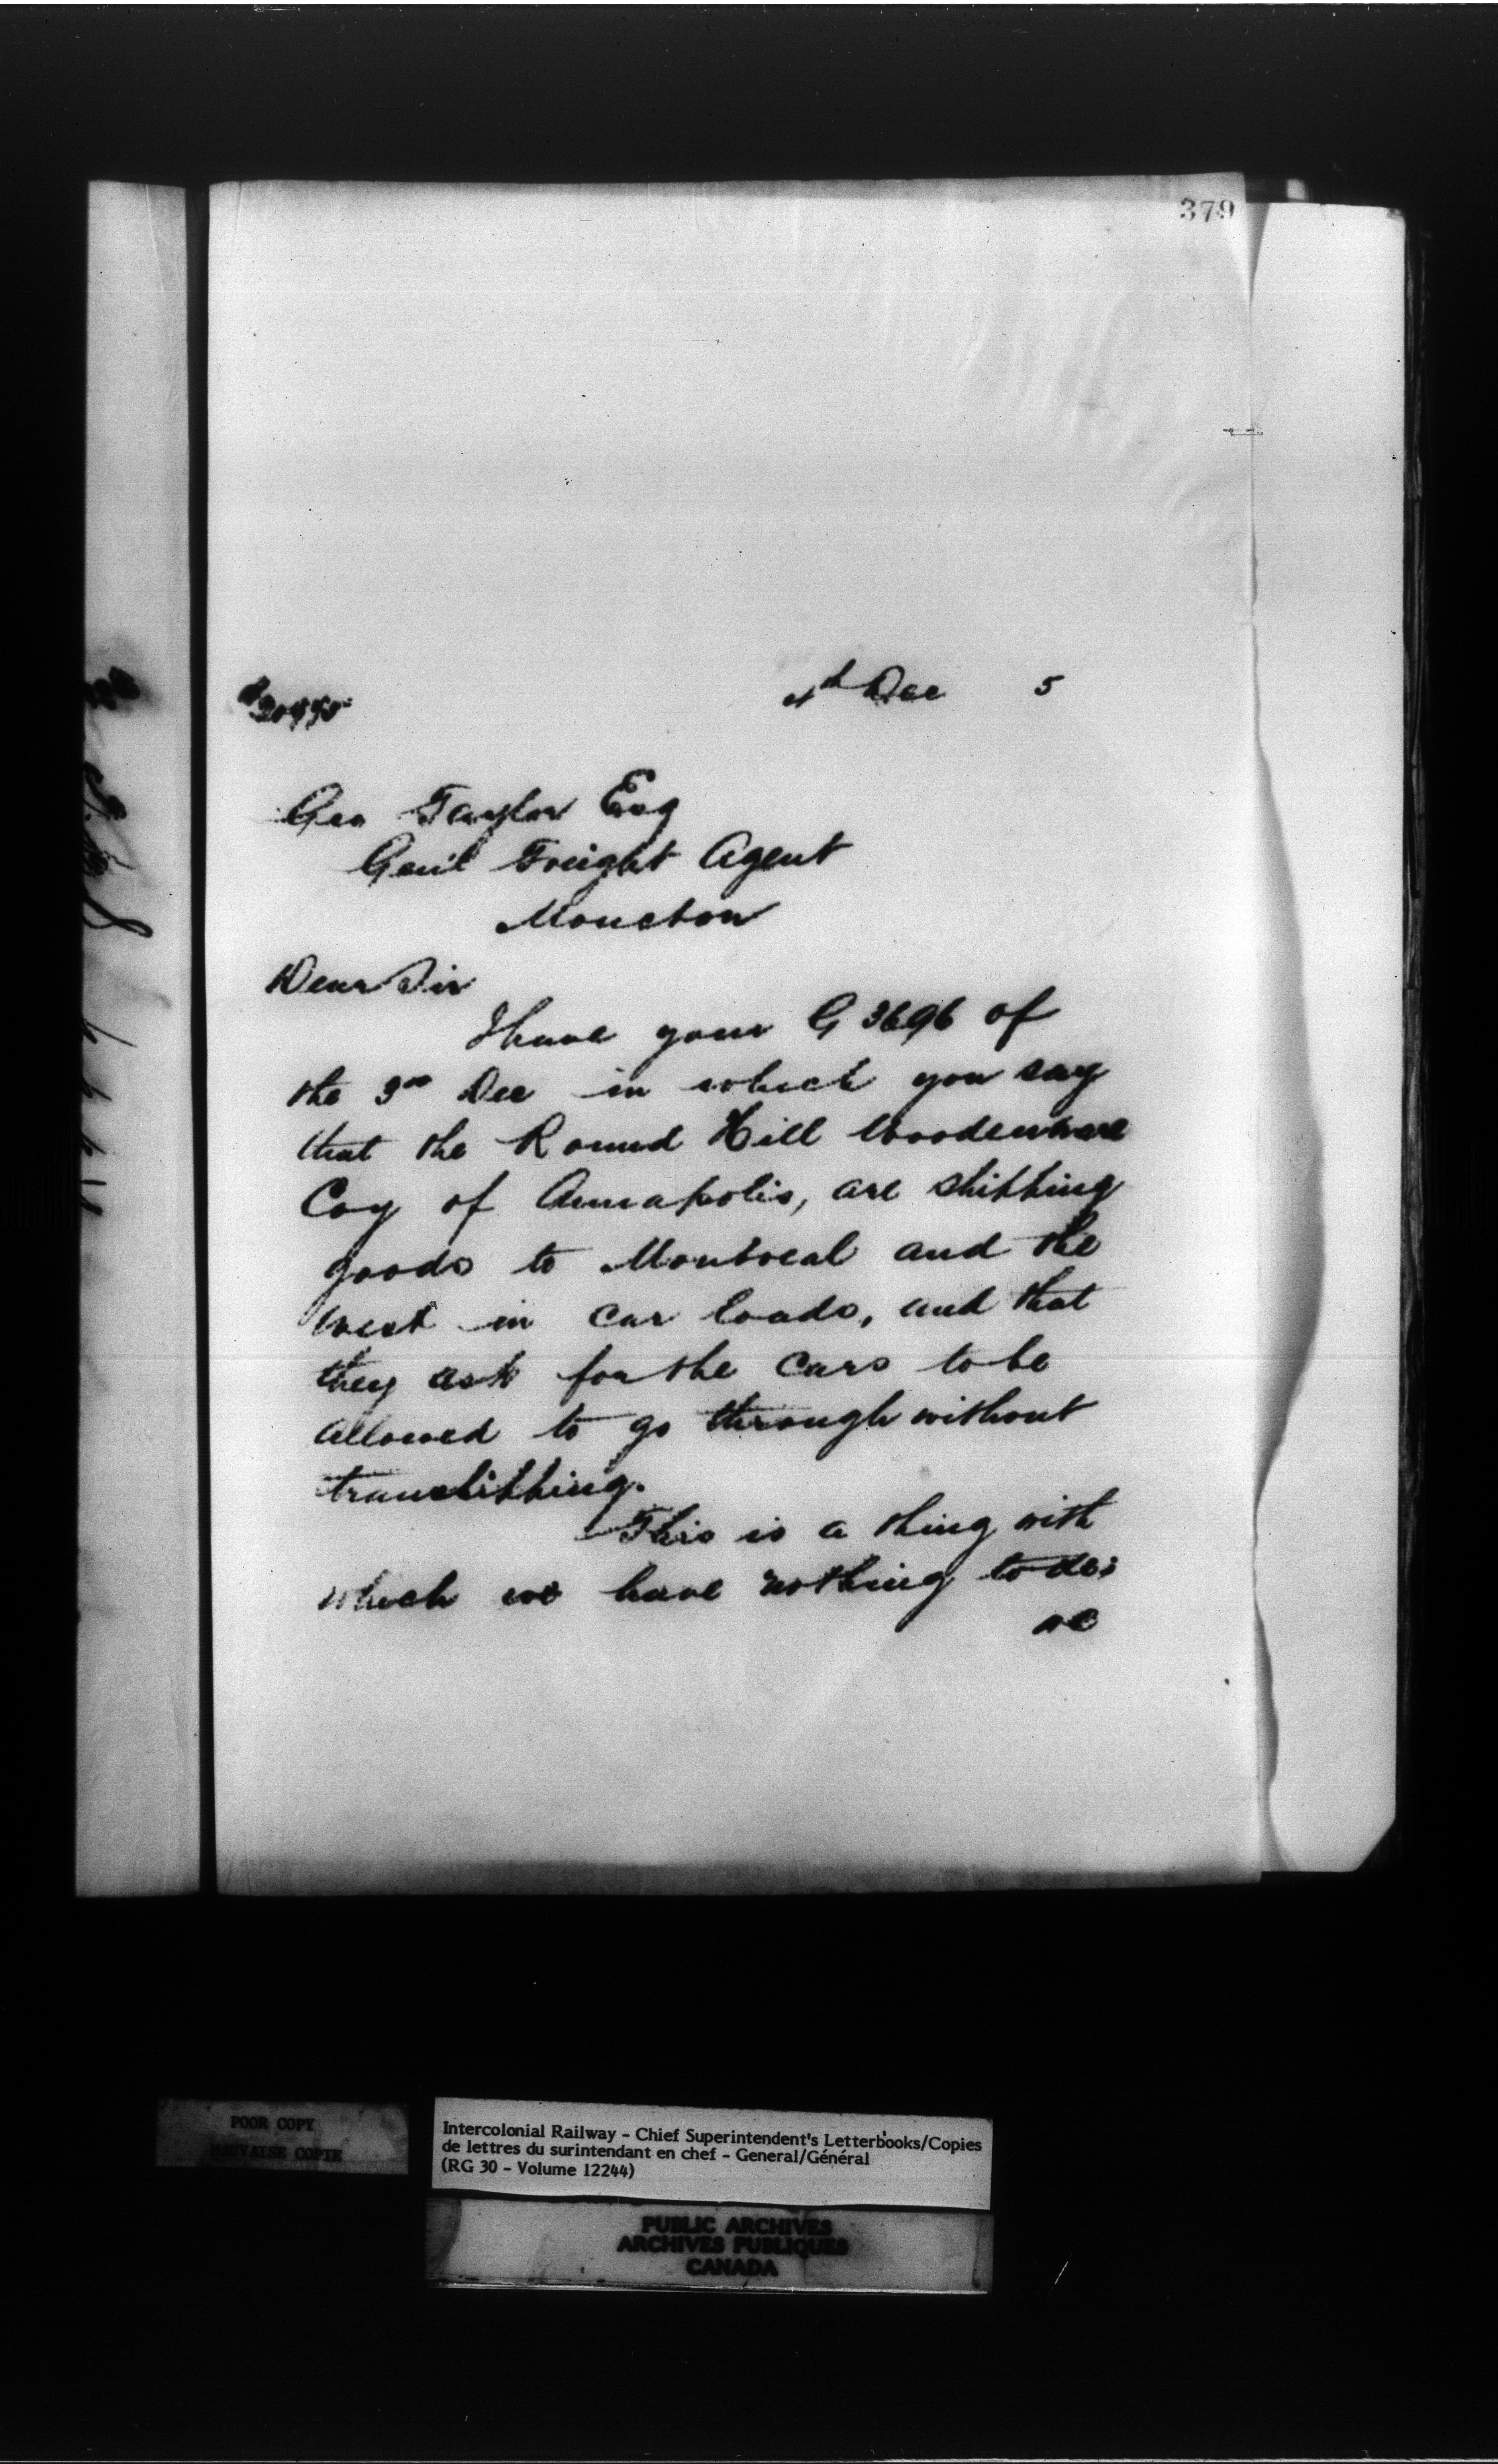 379
4th Dec 5
Geo Taylor Esq
Gen'l Freight Agent
Moncton
Dear Sir
I have your G 3696 of
the 3rd Dec in which you say
that the Round Hill Woodenware
Coy of Annapolis, are shipping
goods to Montreal and the
west in car loads, and that
they ask for the cars to be
allowed to go through without
transhipping.
This is a thing with
which we have nothing to do;
POOR COPY
MAUVAISE COPIE
Intercolonial Railway - Chief Superintendent's Letterbooks/Copies
de lettres du surintendant en chef - General/Général
(RG 30 - Volume 12244)
PUBLIC ARCHIVES
ARCHIVES PUBLIQUES
CANADA